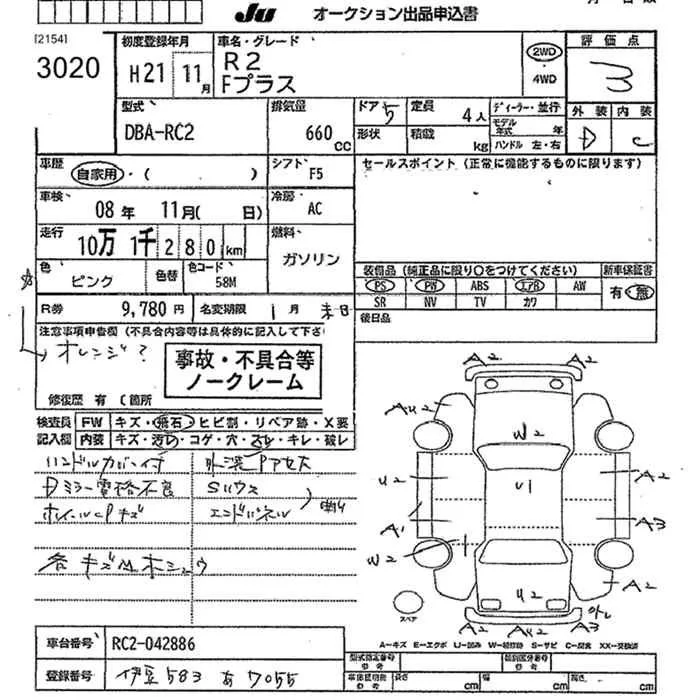 JU オークション出品申込書
[2154]
3020
初度登録年月
H21 11月
車名・グレード
R2
Fプラス
2WD
・4WD
評価点
3
型式
DBA-RC2
排気量
660 cc
ドア 5
形状
定員 4人
積載 kg
ディーラー・並行
モデル年式 年
ハンドル 左・右
外装 内装
D C
車歴
自家用・( )
シフト
F5
セールスポイント (正常に機能するものに限ります)
車検
08年 11月( 日)
冷房
AC
走行
10万 1千 280 km
燃料
ガソリン
色
ピンク
色替
色コード
58M
装備品 (純正品に限り○をつけてください) 新車保証書
PS PW ABS エアB AW 有・無
SR NV TV カワ
R券 9,780円 名変期限 1月末日
後日品
注意事項申告欄 (不具合内容等は具体的に記入して下さ
オレンジ?
事故・不具合等
ノークレーム
修復歴 有 (箇所
検査員 FW キズ・飛石・ヒビ割・リペア跡・X要
記入欄 内装 キズ・汚レ・コゲ・穴・スレ・キレ・破レ
ハンドルカバー付
Dミラー電格不良
ホイールCPキズ
エンドパネル
各キズM ホシュウ
A2 A2
AU2
W2
U2 U1 A2
A1 A3
W2
U2 A2
A2 A2 A3
スペア
A-キズ E-エクボ U-凹み W-補修跡 S-サビ C-腐食 XX-交換済
車台番号 RC2-042886
型式指定番号 参考 類別区分番号 参考
登録番号 伊豆 583 あ 7055
車体図照寸 参考 長さ cm 幅 cm 高さ cm